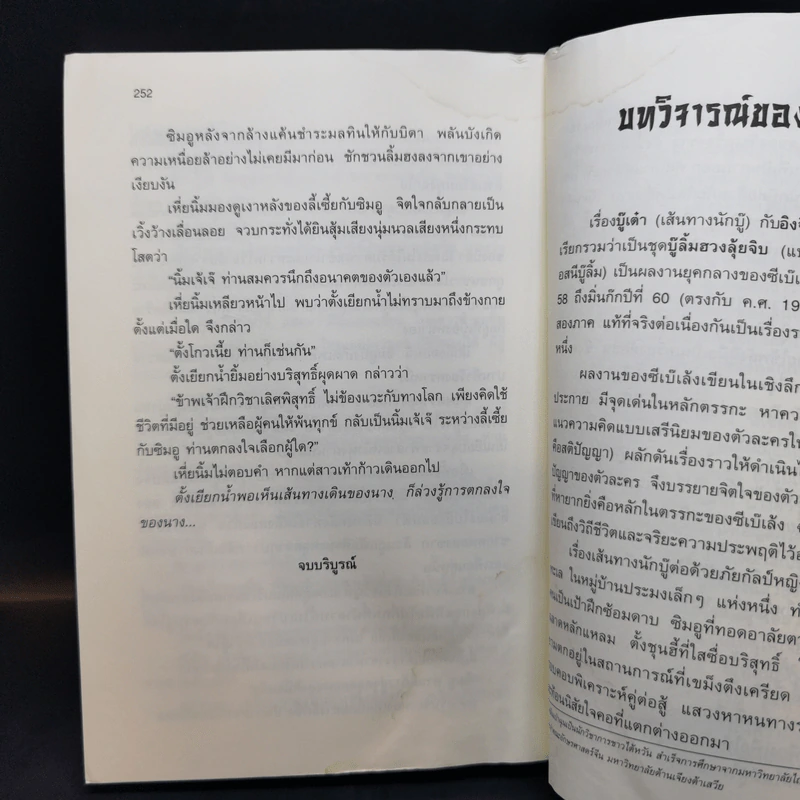 252
ซิมอูหลังจากล้างแค้นชำระมลทินให้กับบิดา พลันบังเกิด
ความเหนื่อยล้าอย่างไม่เคยมีมาก่อน ชักชวนลิ้มฮงลงจากเขาอย่าง
เงียบงัน
เหี่ยนิ้มมองดูเงาหลังของลี้เซี้ยกับซิมอู จิตใจกลับกลายเป็น
เวิ้งว้างเลื่อนลอย จวบกระทั่งได้ยินสุ้มเสียงนุ่มนวลเสียงหนึ่งกระทบ
โสตว่า
“นิ้มเจ้เจ๊ ท่านสมควรนึกถึงอนาคตของตัวเองแล้ว”
เหี่ยนิ้มเหลียวหน้าไป พบว่าตั้งเยียกน้ำไม่ทราบมาถึงข้างกาย
ตั้งแต่เมื่อใด จึงกล่าว
“ตั้งโกวเนี้ย ท่านก็เช่นกัน”
ตั้งเยียกน้ำยิ้มอย่างบริสุทธิ์ผุดผาด กล่าวว่า
“ข้าพเจ้าฝึกวิชาเลิศพิสุทธิ์ ไม่ข้องแวะกับทางโลก เพียงคิดใช้
ชีวิตที่มีอยู่ ช่วยเหลือผู้คนให้พ้นทุกข์ กลับเป็นนิ้มเจ้เจ๊ ระหว่างลี้เซี้ย
กับซิมอู ท่านตกลงใจเลือกผู้ใด?”
เหี่ยนิ้มไม่ตอบคำ หากแต่สาวเท้าก้าวเดินออกไป
ตั้งเยียกน้ำพอเห็นเส้นทางเดินของนาง ก็ล่วงรู้การตกลงใจ
ของนาง...
จบบริบูรณ์
บทวิจารณ์ของ
เรื่องบู๊เต๋า (เส้นทางนักบู๊) กับ
เรียกรวมว่าเป็นชุดบู๊ลิ้มฮวงลุ้ยจิบ
อสนีบู๊ลิ้ม) เป็นผลงานยุคกลางของซีเบ๊
58 ถึงมิ่นก๊กปีที่ 60 (ตรงกับ ค.ศ. 19
สองภาค แท้ที่จริงต่อเนื่องกันเป็นเรื่อง
หนึ่ง
ผลงานของซีเบ๊เล้งเขียนในเชิงลึก
ประกาย มีจุดเด่นในหลักตรรกะ หาความ
แนวความคิดแบบเสรีนิยมของตัวละคร
คือสติปัญญา) ผลักดันเรื่องราวให้ดำเนิน
ปัญญาของตัวละคร จึงบรรยายจิตใจของ
ที่หายากยิ่งคือหลักในตรรกะของซีเบ๊เล้ง
เขียนถึงวิถีชีวิตและจริยะความประพฤติไว้
เรื่องเส้นทางนักบู๊ต่อด้วยภัยกัลป์
ในหมู่บ้านประมงเล็กๆ แห่งหนึ่ง
เป็นเป้าฝึกซ้อมดาบ ซิมอูที่ทอดอาลัย
หลักแหลม ตั้งชุนฮี้ที่ใสซื่อบริสุทธิ์
ตกอยู่ในสถานการณ์ที่เขม็งตึงเครียด
พิเคราะห์คู่ต่อสู้ แสวงหาหนทาง
นิสัยใจคอที่แตกต่างออกมา
เป็นนักวิชาการชาวไต้หวัน สำเร็จการศึกษาจากมหาวิทยาลัย
ศาสตร์จีน มหาวิทยาลัยต้านเจียงต้าเสวีย